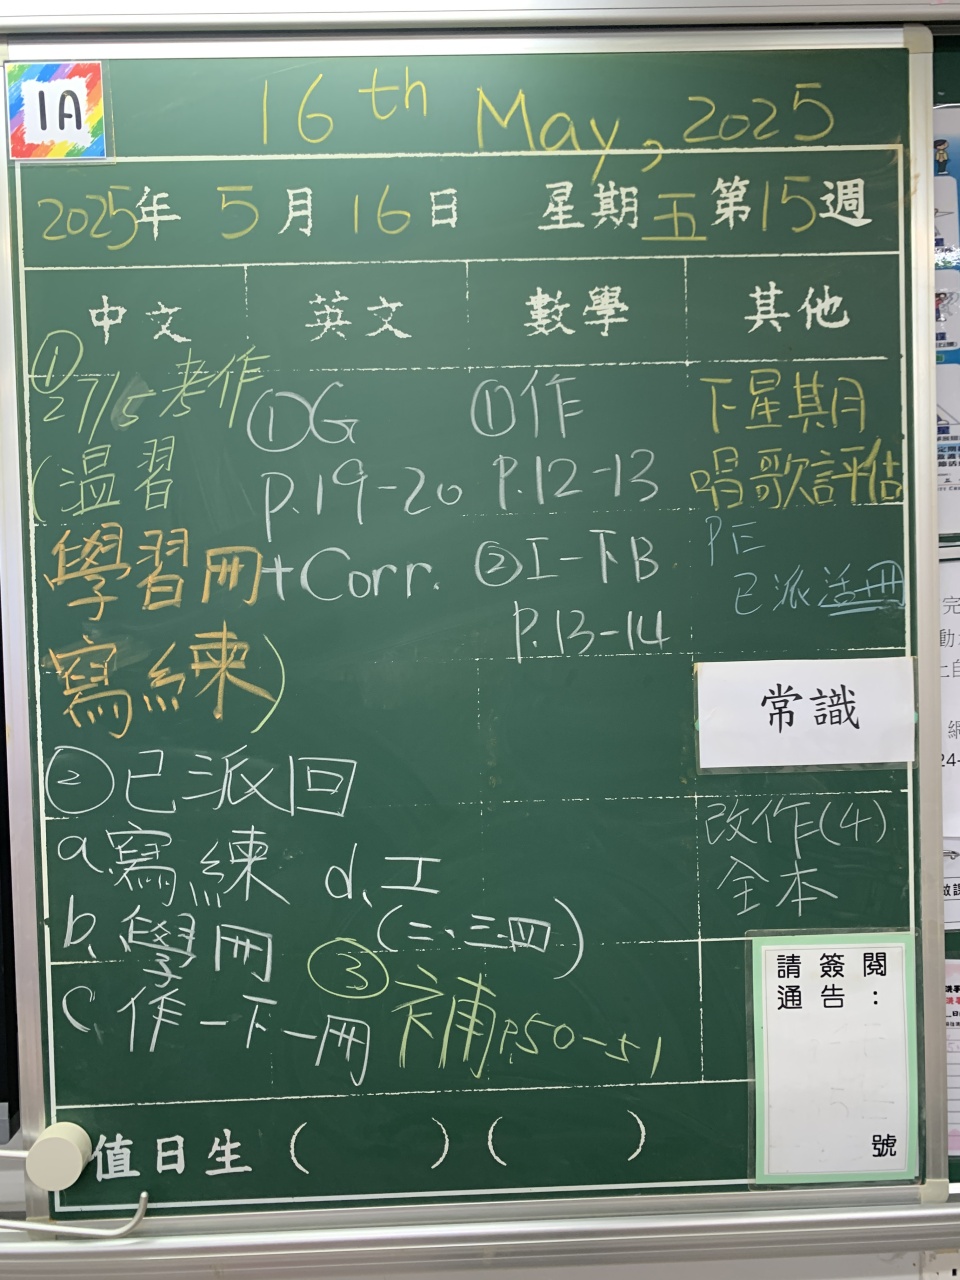 1A
16th May, 2025
2025年 5月 16日 星期五 第15週
中文 英文 數學 其他
① 27/5 考作
(溫習
學習冊
寫練)
② 已派回
a. 寫練
b. 學冊
c. 作一下一冊
d. 工
(二、三、四)
③ 補 p.50-51
① G
p.19-20
+ Corr.
① 作
P.12-13
② 工一下B
P.13-14
下星期
唱歌評估
PE
已派活冊
常識
改作(4)
全本
請簽閱
通告：
號
值日生 ( ) ( )